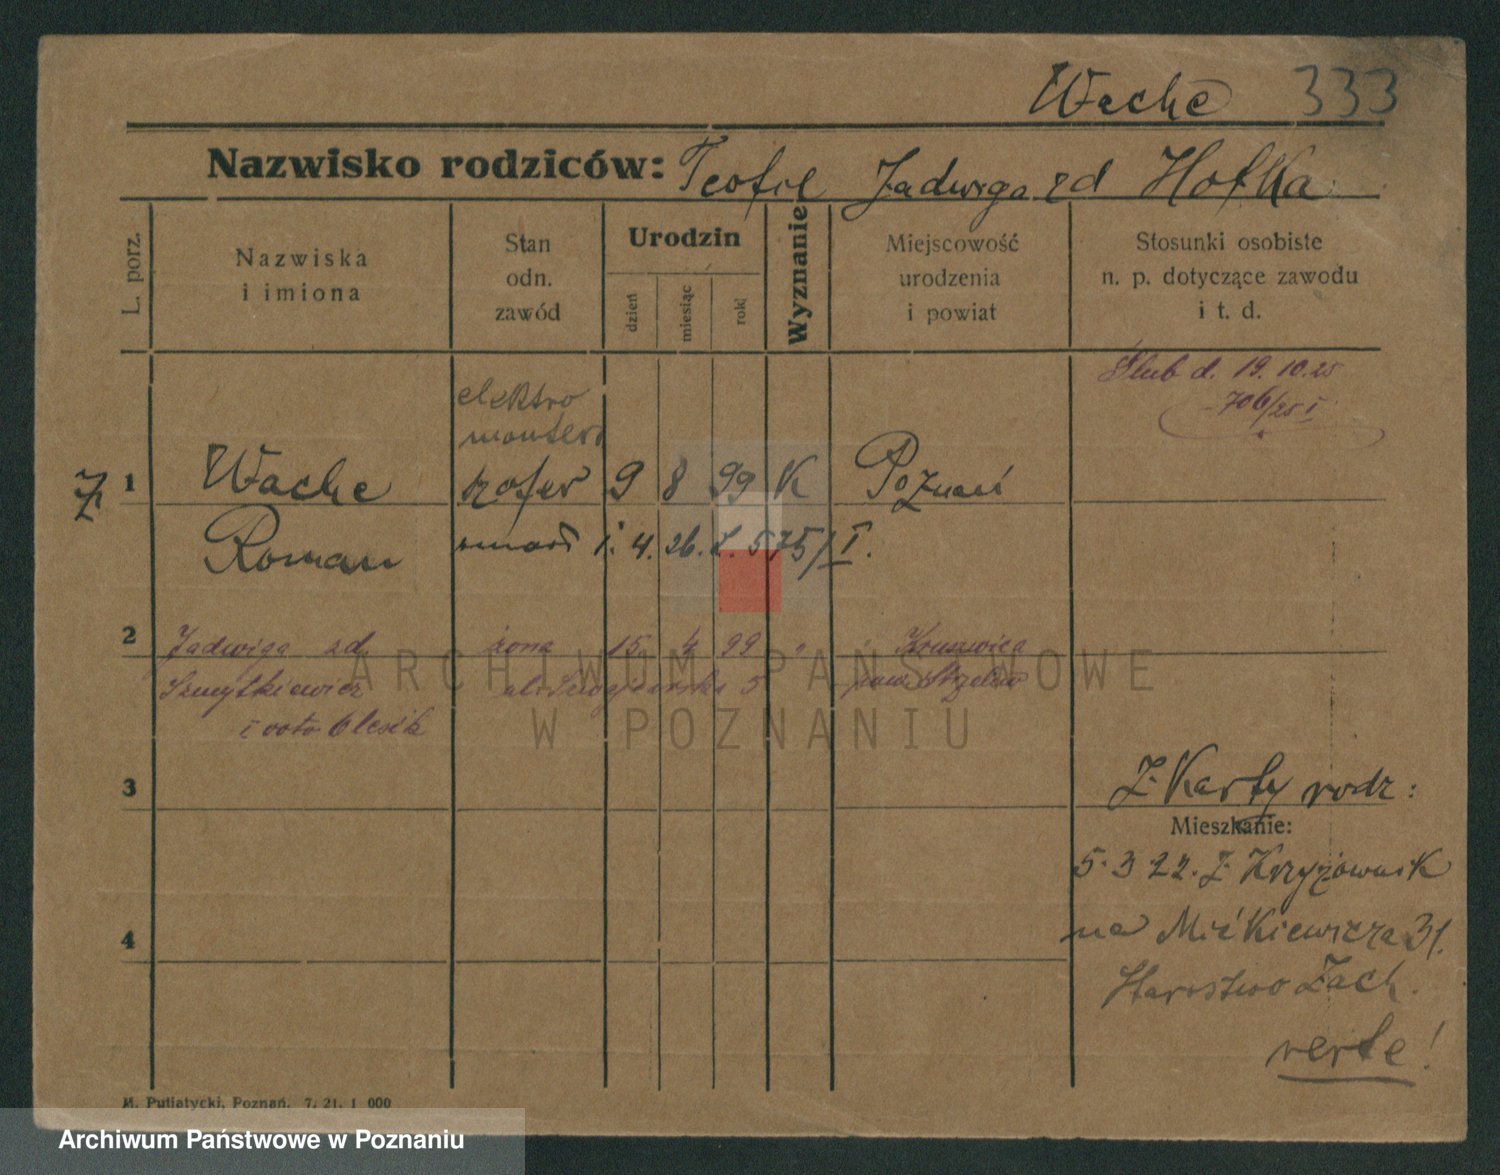 Wache 333
Nazwisko rodziców: Teofil Jadwiga zd Hofka
L. porz.
Nazwiska
i imiona
Stan
odn.
zawód
Urodzin
dzień
miesiąc
rok
Wyznanie
Miejscowość
urodzenia
i powiat
Stosunki osobiste
n. p. dotyczące zawodu
i t. d.
Ślub d. 19.10.25
706/25 I
elektro
monter
Ż 1 Wache szofer 9 8 99 K Poznań
Roman zmarł 1. 4. 26. 575/I.
2 Jadwiga zd. żona 15. 4 99 " Kruszwica
Szmytkiewicz 5 pow. Strzelno
I voto Olesik
3
Z Karty rodz:
Mieszkanie:
5.3 22. Z Krzyżownik
na Mickiewicza 31.
4
Starostwo Zach.
verte!
M. Putiatycki, Poznań. 7. 21. 1 000
ARCHIWUM PAŃSTWOWE
W POZNANIU
Archiwum Państwowe w Poznaniu